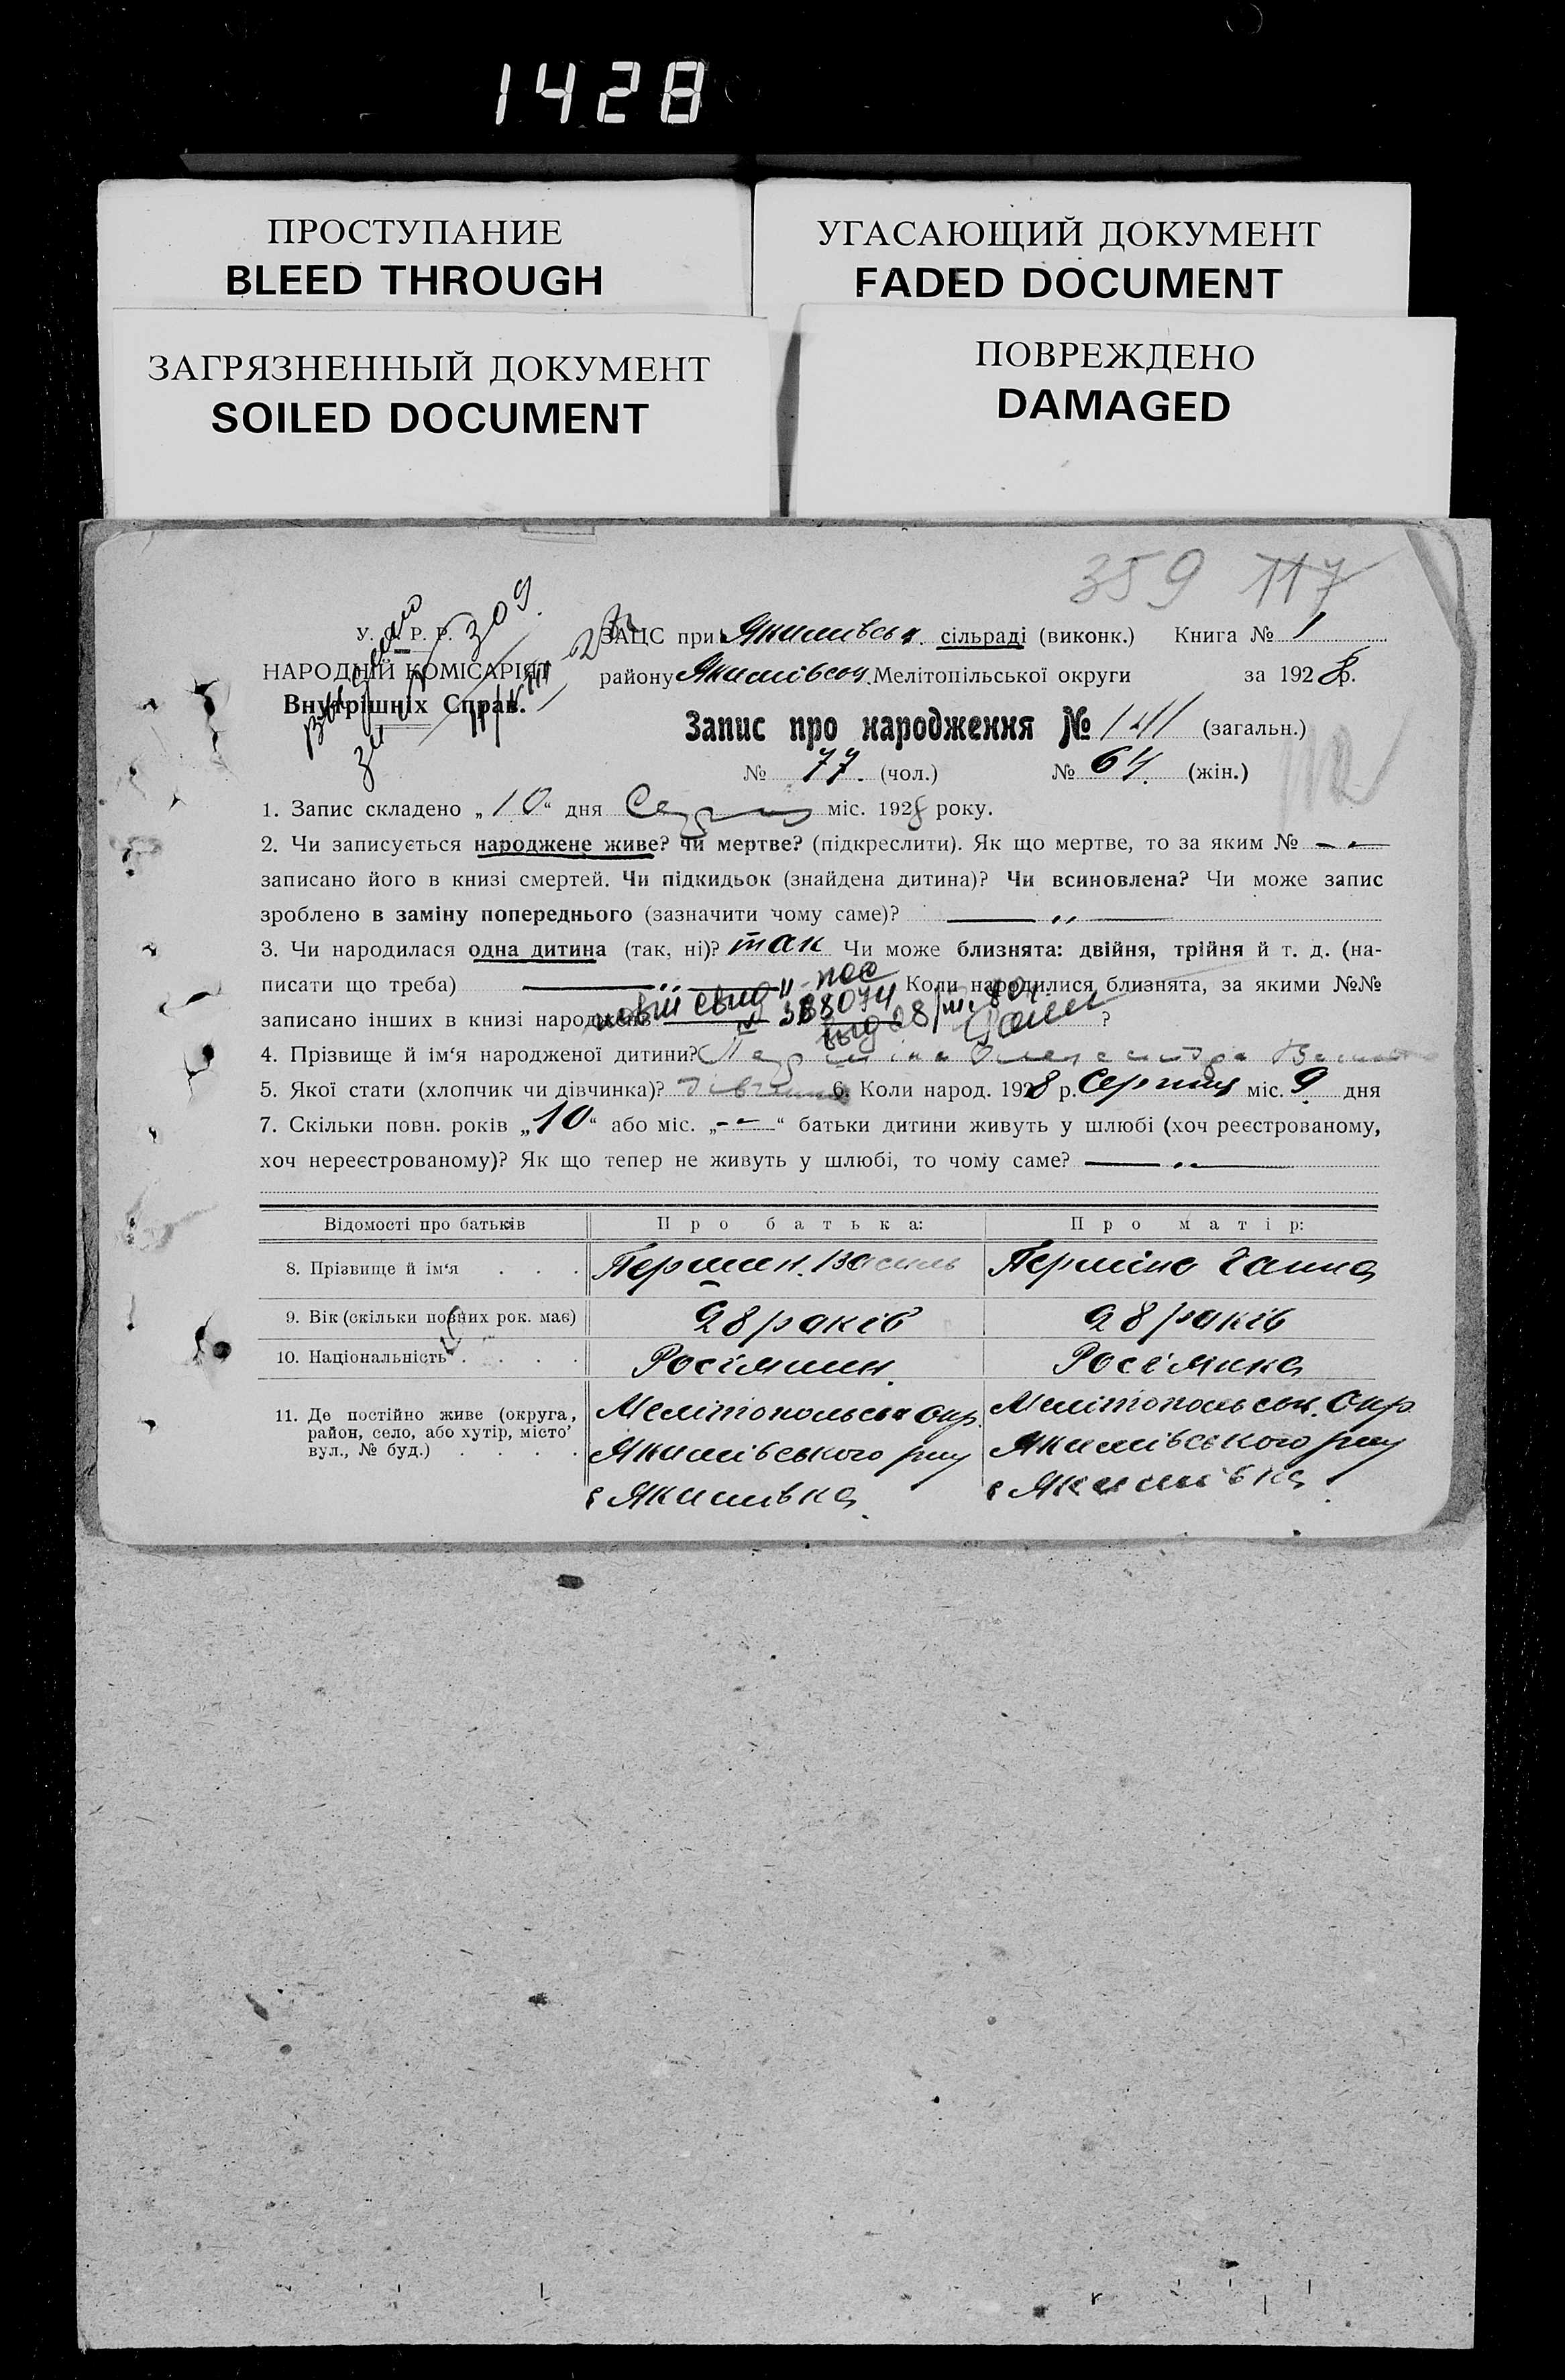 1428
ПРОСТУПАНИЕ
BLEED THROUGH
УГАСАЮЩИЙ ДОКУМЕНТ
FADED DOCUMENT
ЗАГРЯЗНЕННЫЙ ДОКУМЕНТ
SOILED DOCUMENT
ПОВРЕЖДЕНО
DAMAGED
359 117
У. С. Р. Р.
НАРОДНІЙ КОМІСАРІЯТ
Внутрішніх Справ.
309
ЗАЦС при Якимівськ. сільраді (виконк.) Книга № 1
району Якимівськ. Мелітопільської округи за 1928 р.
Запис про народження № 141 (загальн.)
№ 77. (чол.) № 64. (жін.)
1. Запис складено „10“ дня міс. 1928 року.
2. Чи записується народжене живе? чи мертве? (підкреслити). Як що мертве, то за яким №
записано його в книзі смертей. Чи підкидьок (знайдена дитина)? Чи всиновлена? Чи може запис
зроблено в заміну попереднього (зазначити чому саме)?
3. Чи народилася одна дитина (так, ні)? так Чи може близнята: двійня, трійня й т. д. (на-
писати що треба) Коли народилися близнята, за якими №№
записано інших в книзі народжень ?
4. Прізвище й ім‘я народженої дитини? Першіна Олександра
5. Якої стати (хлопчик чи дівчинка)? дівчинка 6. Коли народ. 1928 р. Серпня міс. 9 дня
7. Скільки повн. років „10“ або міс. „--“ батьки дитини живуть у шлюбі (хоч реєстрованому,
хоч нереєстрованому)? Як що тепер не живуть у шлюбі, то чому саме?
Відомості про батьків Про батька: Про матір:
8. Прізвище й ім‘я . . . Першин. Василь Першіна Ганна
9. Вік (скільки повних рок. має) 28 років 28 років
10. Національність . . . . Росіянин. Росіянка
11. Де постійно живе (округа, район, село, або хутір, місто, вул., № буд.) . . . .
Мелітопольськ окр. Мелітопольськ. Окр.
Якимівського р-ну Якимівського р-ну
с Якимівка. с Якимівка.